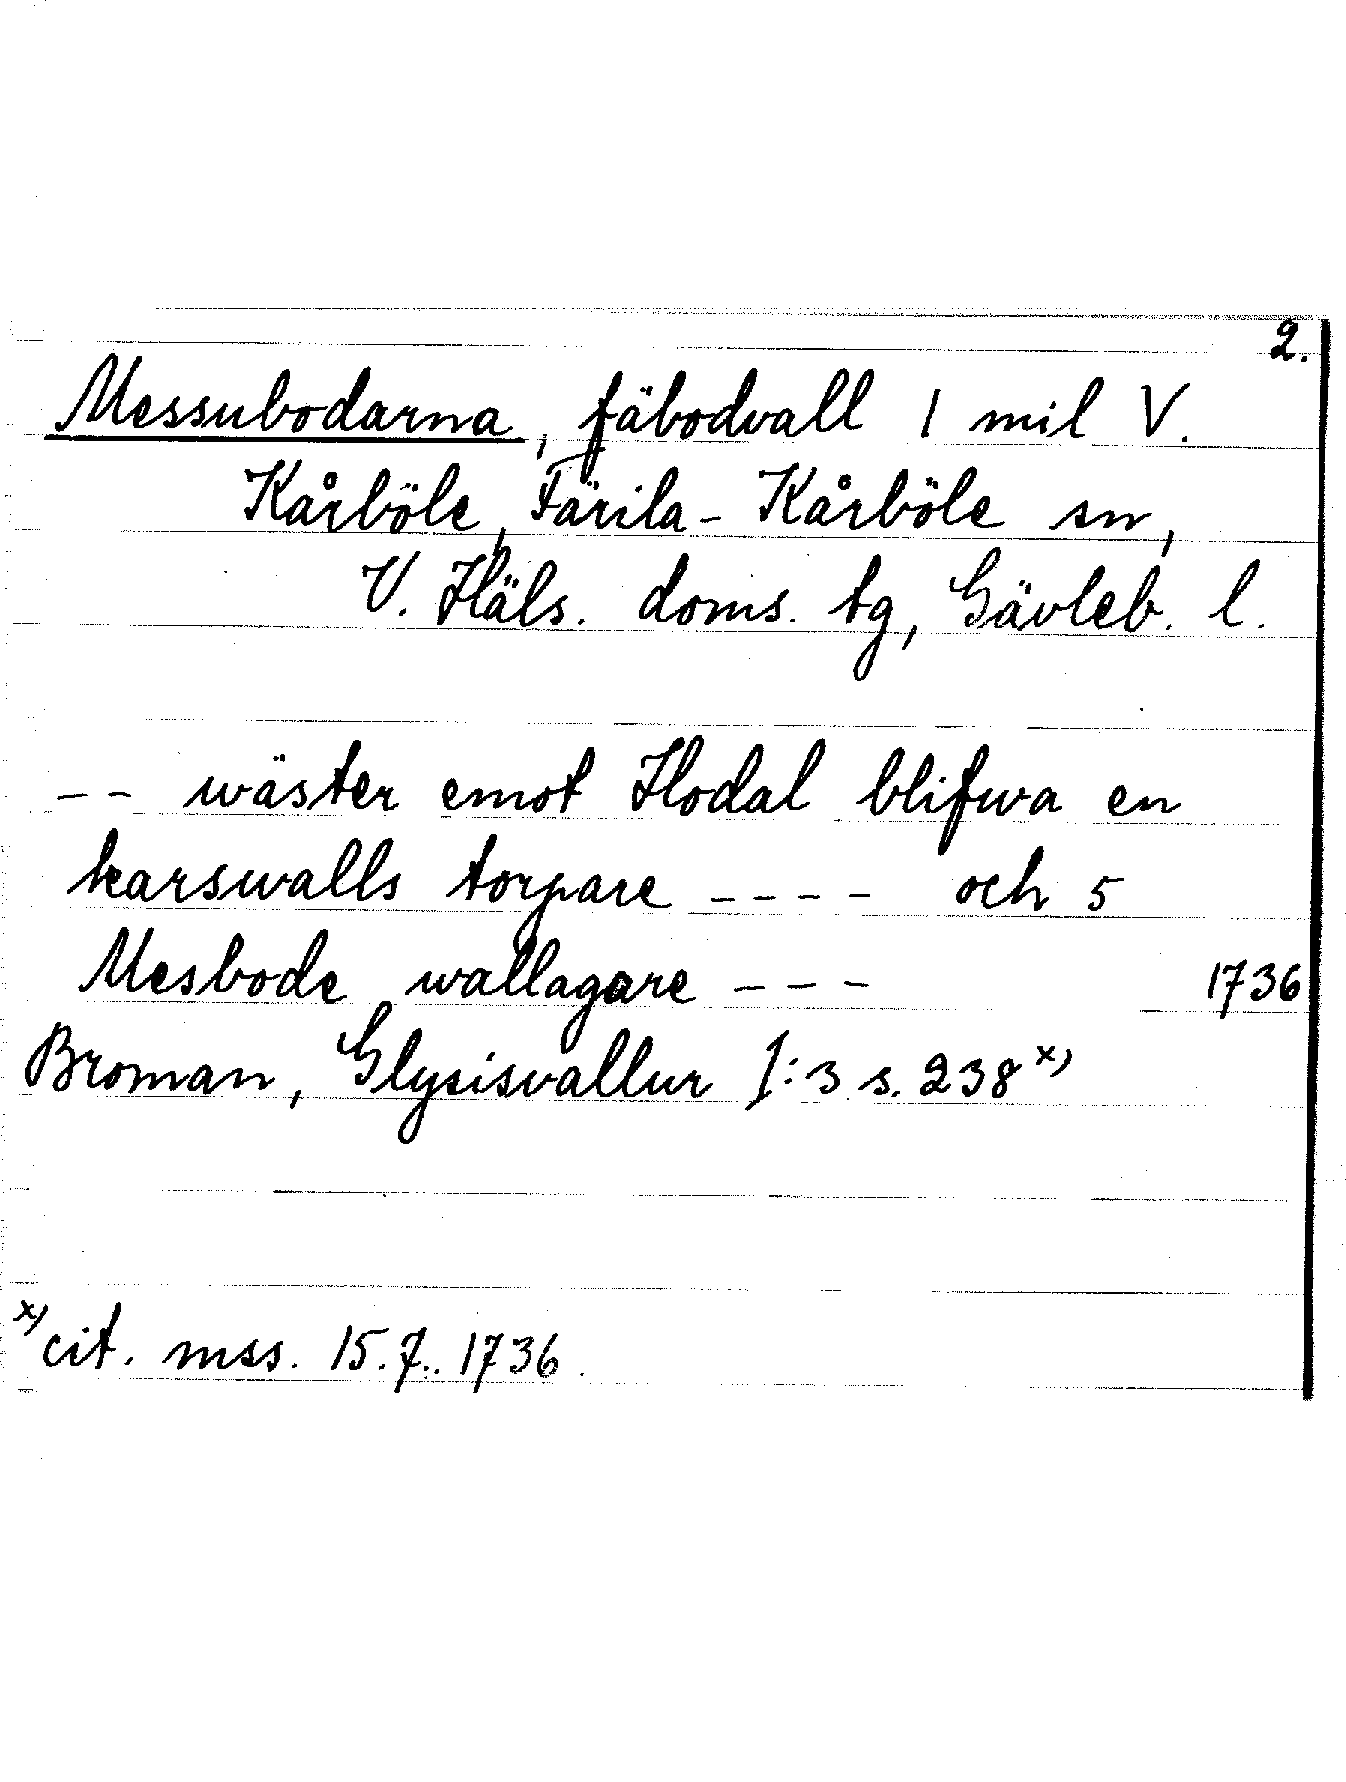 2.
Messubodarna, fäbodvall 1 mil V.
Kårböle, Färila-Kårböle sn,
V. Häls. doms. tg, Gävleb. l.
-- wäster emot Hodal blifwa en
karswalls torpare ---- och 5
Mesbode wallagare --- 1736
Broman, Glysisvallur I:3 s. 238 x)
x) cit. mss. 15.7. 1736.